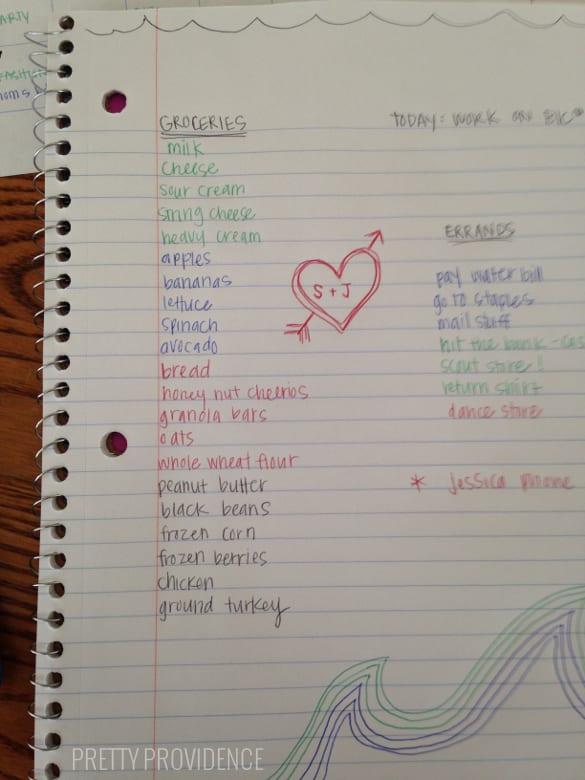 ARTY
GROCERIES
milk
cheese
sour cream
string cheese
heavy cream
apples
bananas
lettuce
spinach
avocado
bread
honey nut cheerios
granola bars
oats
whole wheat flour
peanut butter
black beans
frozen corn
frozen berries
chicken
ground turkey
S + J
TODAY: WORK ON
ERRANDS
pay water bill
go to staples
mail stuff
hit the bank -
scout store!
return shirt
dance store
* Jessica phone
PRETTY PROVIDENCE